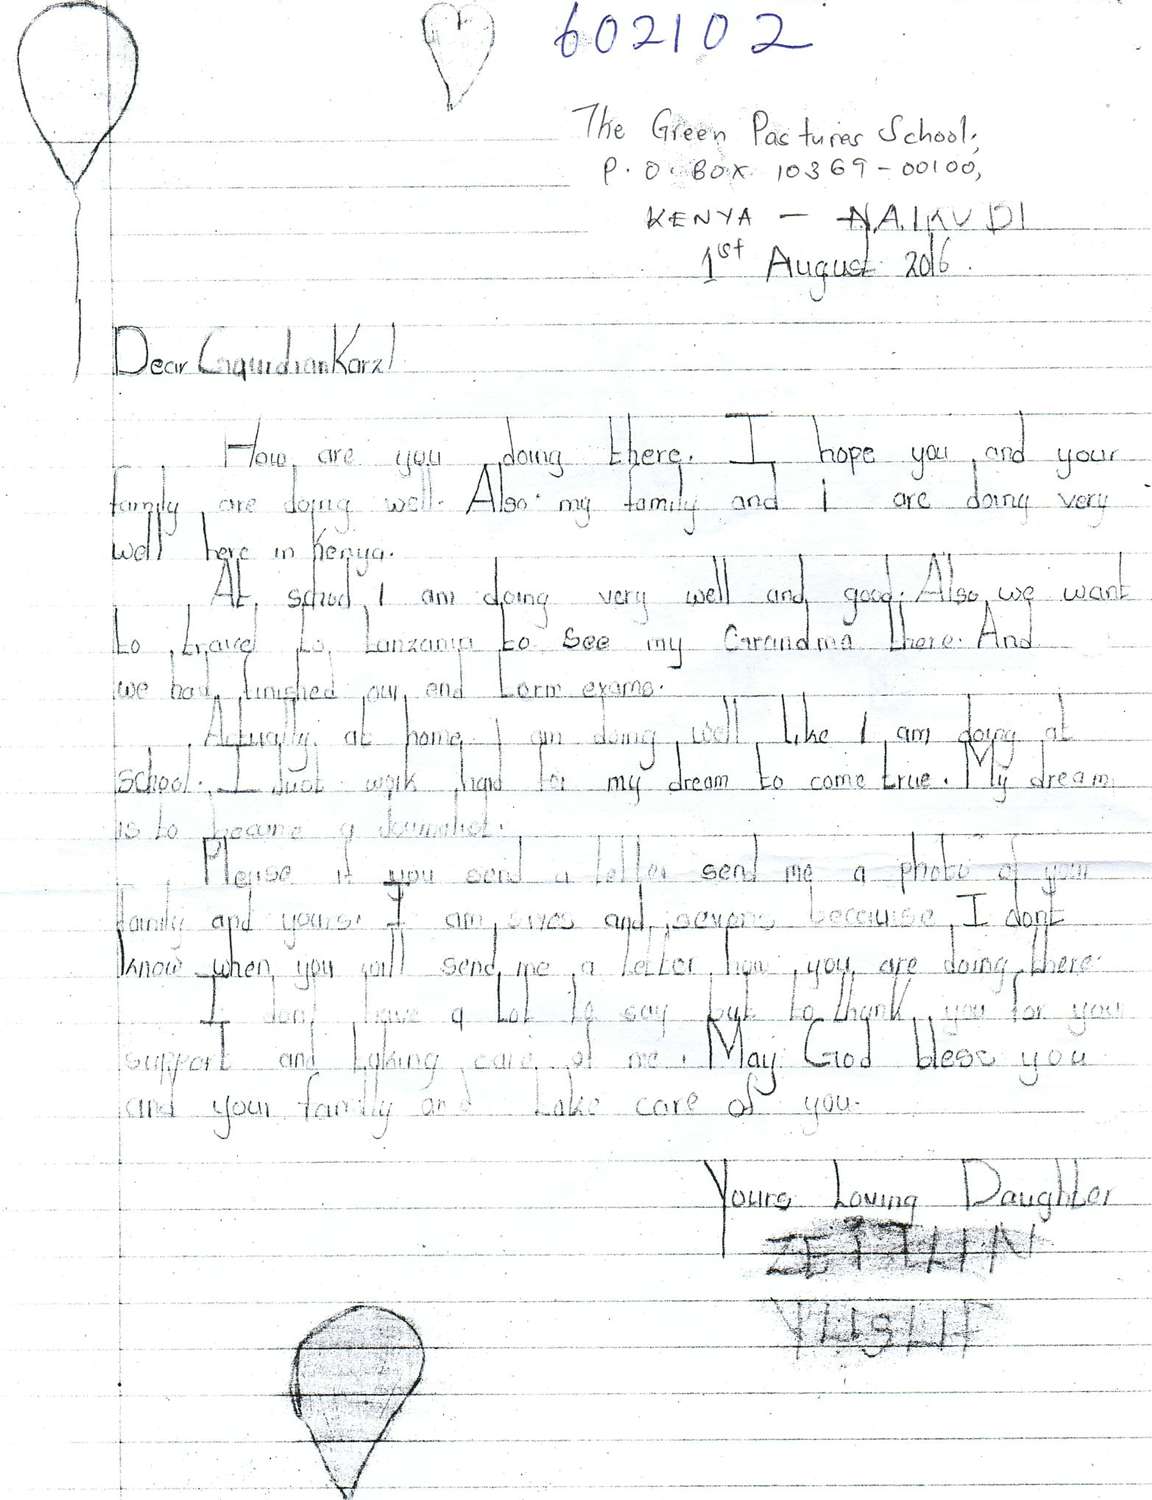 602102
The Green Pastures School,
P.O. BOX 10369-00100,
KENYA - NAIRUDI
1st August 2016.
Dear Guardian Karzl
How are you doing there. I hope you and your
family are doing well. Also my family and i are doing very
well here in Kenya.
At school I am doing very well and good. Also we want
to travel to Tanzania to see my Grandma there. And
we had finished our end term exams.
Actually at home I am doing well like I am doing at
school. I just work hard for my dream to come true. My dream
is to become a Journalist.
Please if you send a letter send me a photo of your
family and yours. I am and because I dont
know when you will send me a letter how you are doing there.
I dont have a lot to say but to thank you for your
support and taking care of me. May God bless you
and your family and take care of you.
Yours Loving Daughter
YUSUF